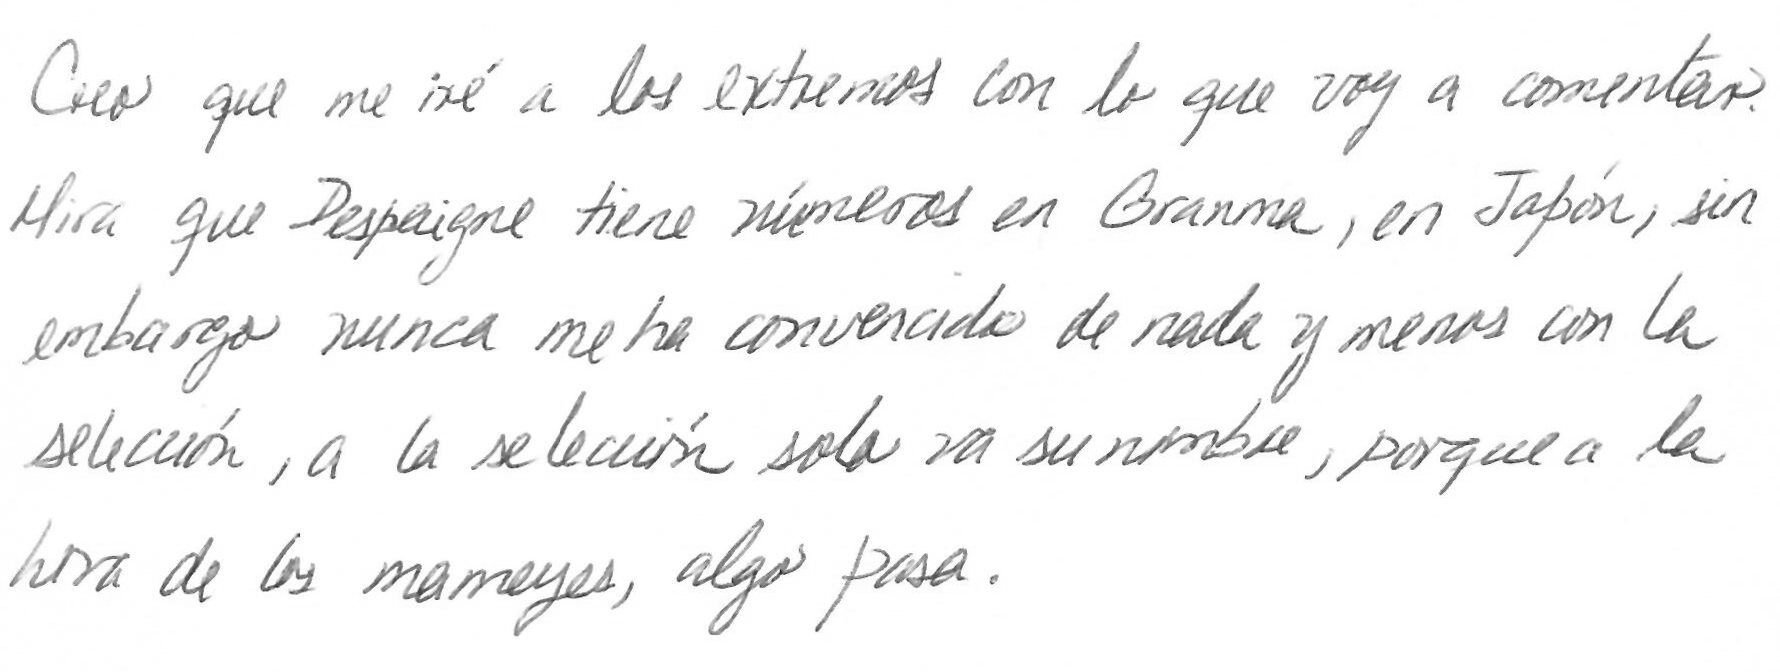 Creo que me iré a los extremos con lo que voy a comentar.
Mira que Despaigne tiene números en Granma, en Japón, sin
embargo nunca me ha convencido de nada y menos con la
selección, a la selección solo va su nombre, porque a la
hora de los mameyes, algo pasa.